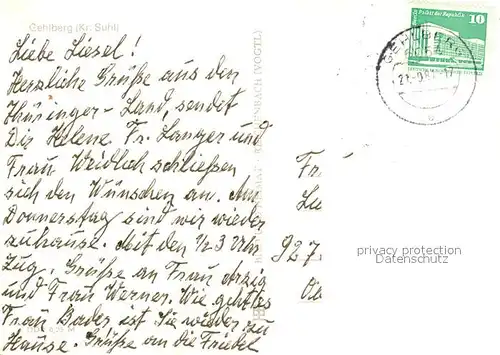 Gehlberg (Kr. Suhl)
Liebe Liesel!
Herzliche Grüße aus den
Thüringer-Land, sendet
Dir Helene. Fr. Langer und
Frau Weidlich schließen
sich den Wünschen an. Am
Donnerstag sind wir wieder
zuhause. Mit den ½3 Uhr
Zug. Grüße an Frau
und Frau Werner. Wie geht es
Frau Bader, ist Sie wieder zu
Hause. Grüße an die Friedel
Palast der Republik 10
GEHLBERG
Fr
Lu
927
privacy protection
Datenschutz